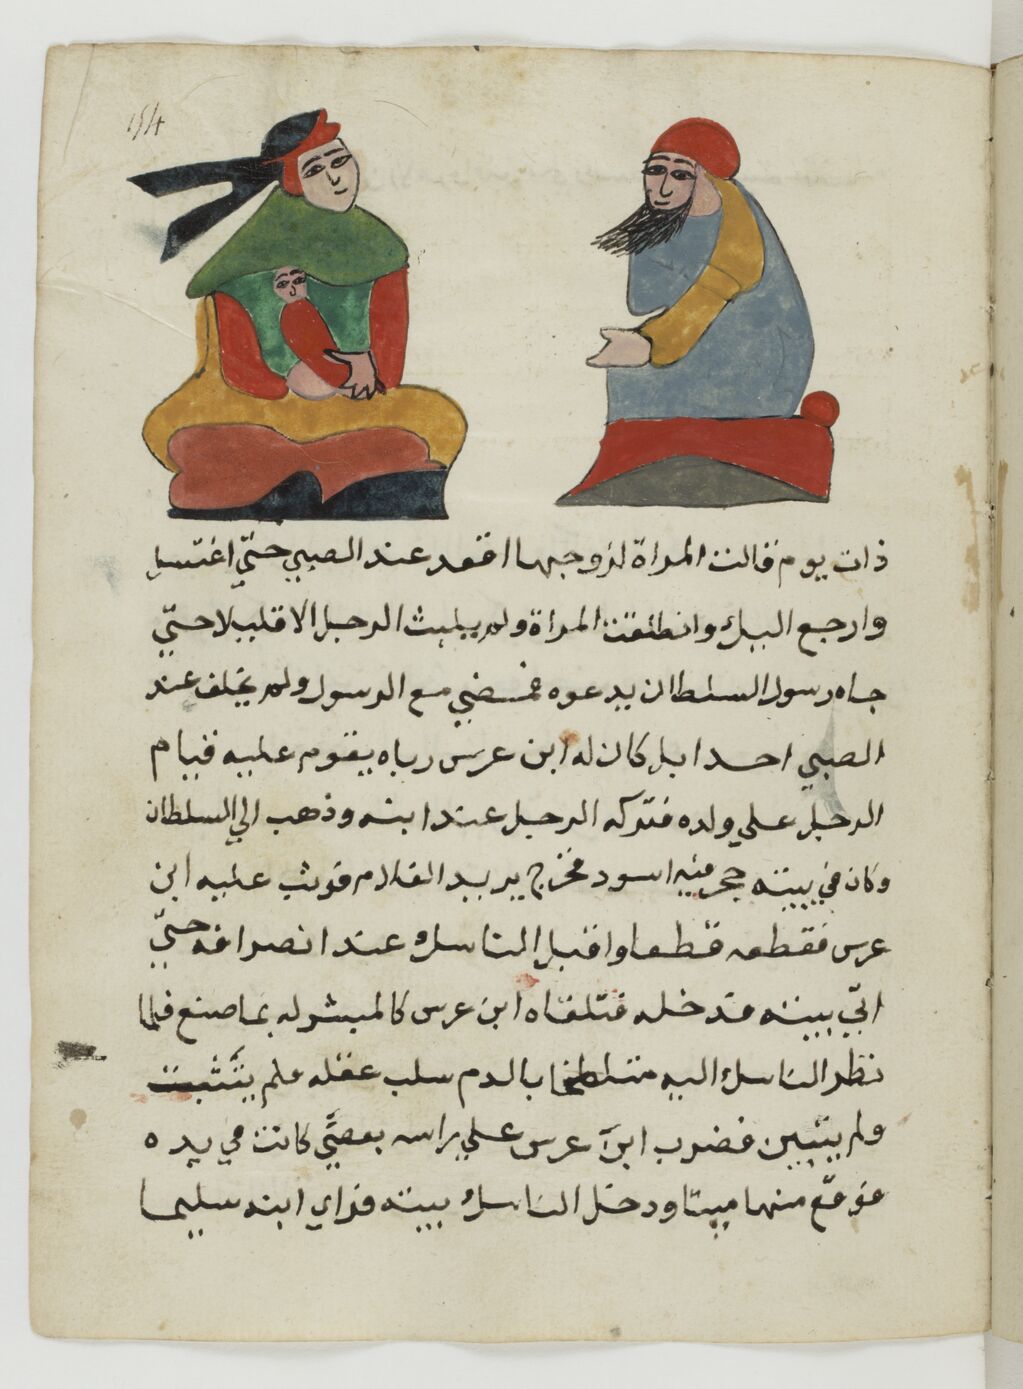 154
ذات يوم فقالت المراة لزوجها اقعد عند الصبي حتي اغتسل
وارجع اليك وانطلقت المراة ولم يلبث الرجل الا قليلا حتي
جاه رسول السلطان يدعوه فمضي مع الرسول ولم يخلف عند
الصبي احدا بل كان له ابن عرس رباه يقوم عليه قيام
الرجل علي ولده فتركه الرجل عند ابنه وذهب الي السلطان
وكان في بيته جحر فيه اسود فخرج يريد الغلام فوثب عليه ابن
عرس فقطعه قطعا واقبل الناسك عند انصرافه حتي
اتي بيته فدخله فتلقاه ابن عرس كالمبشر له بما صنع فلما
نظر الناسك اليه متلطخا بالدم سلب عقله فلم يتثبت
ولم يتبين فضرب ابن عرس علي راسه بعصي كانت في يده
فوقع منها ميتا ودخل الناسك بيته فراي ابنه سليما